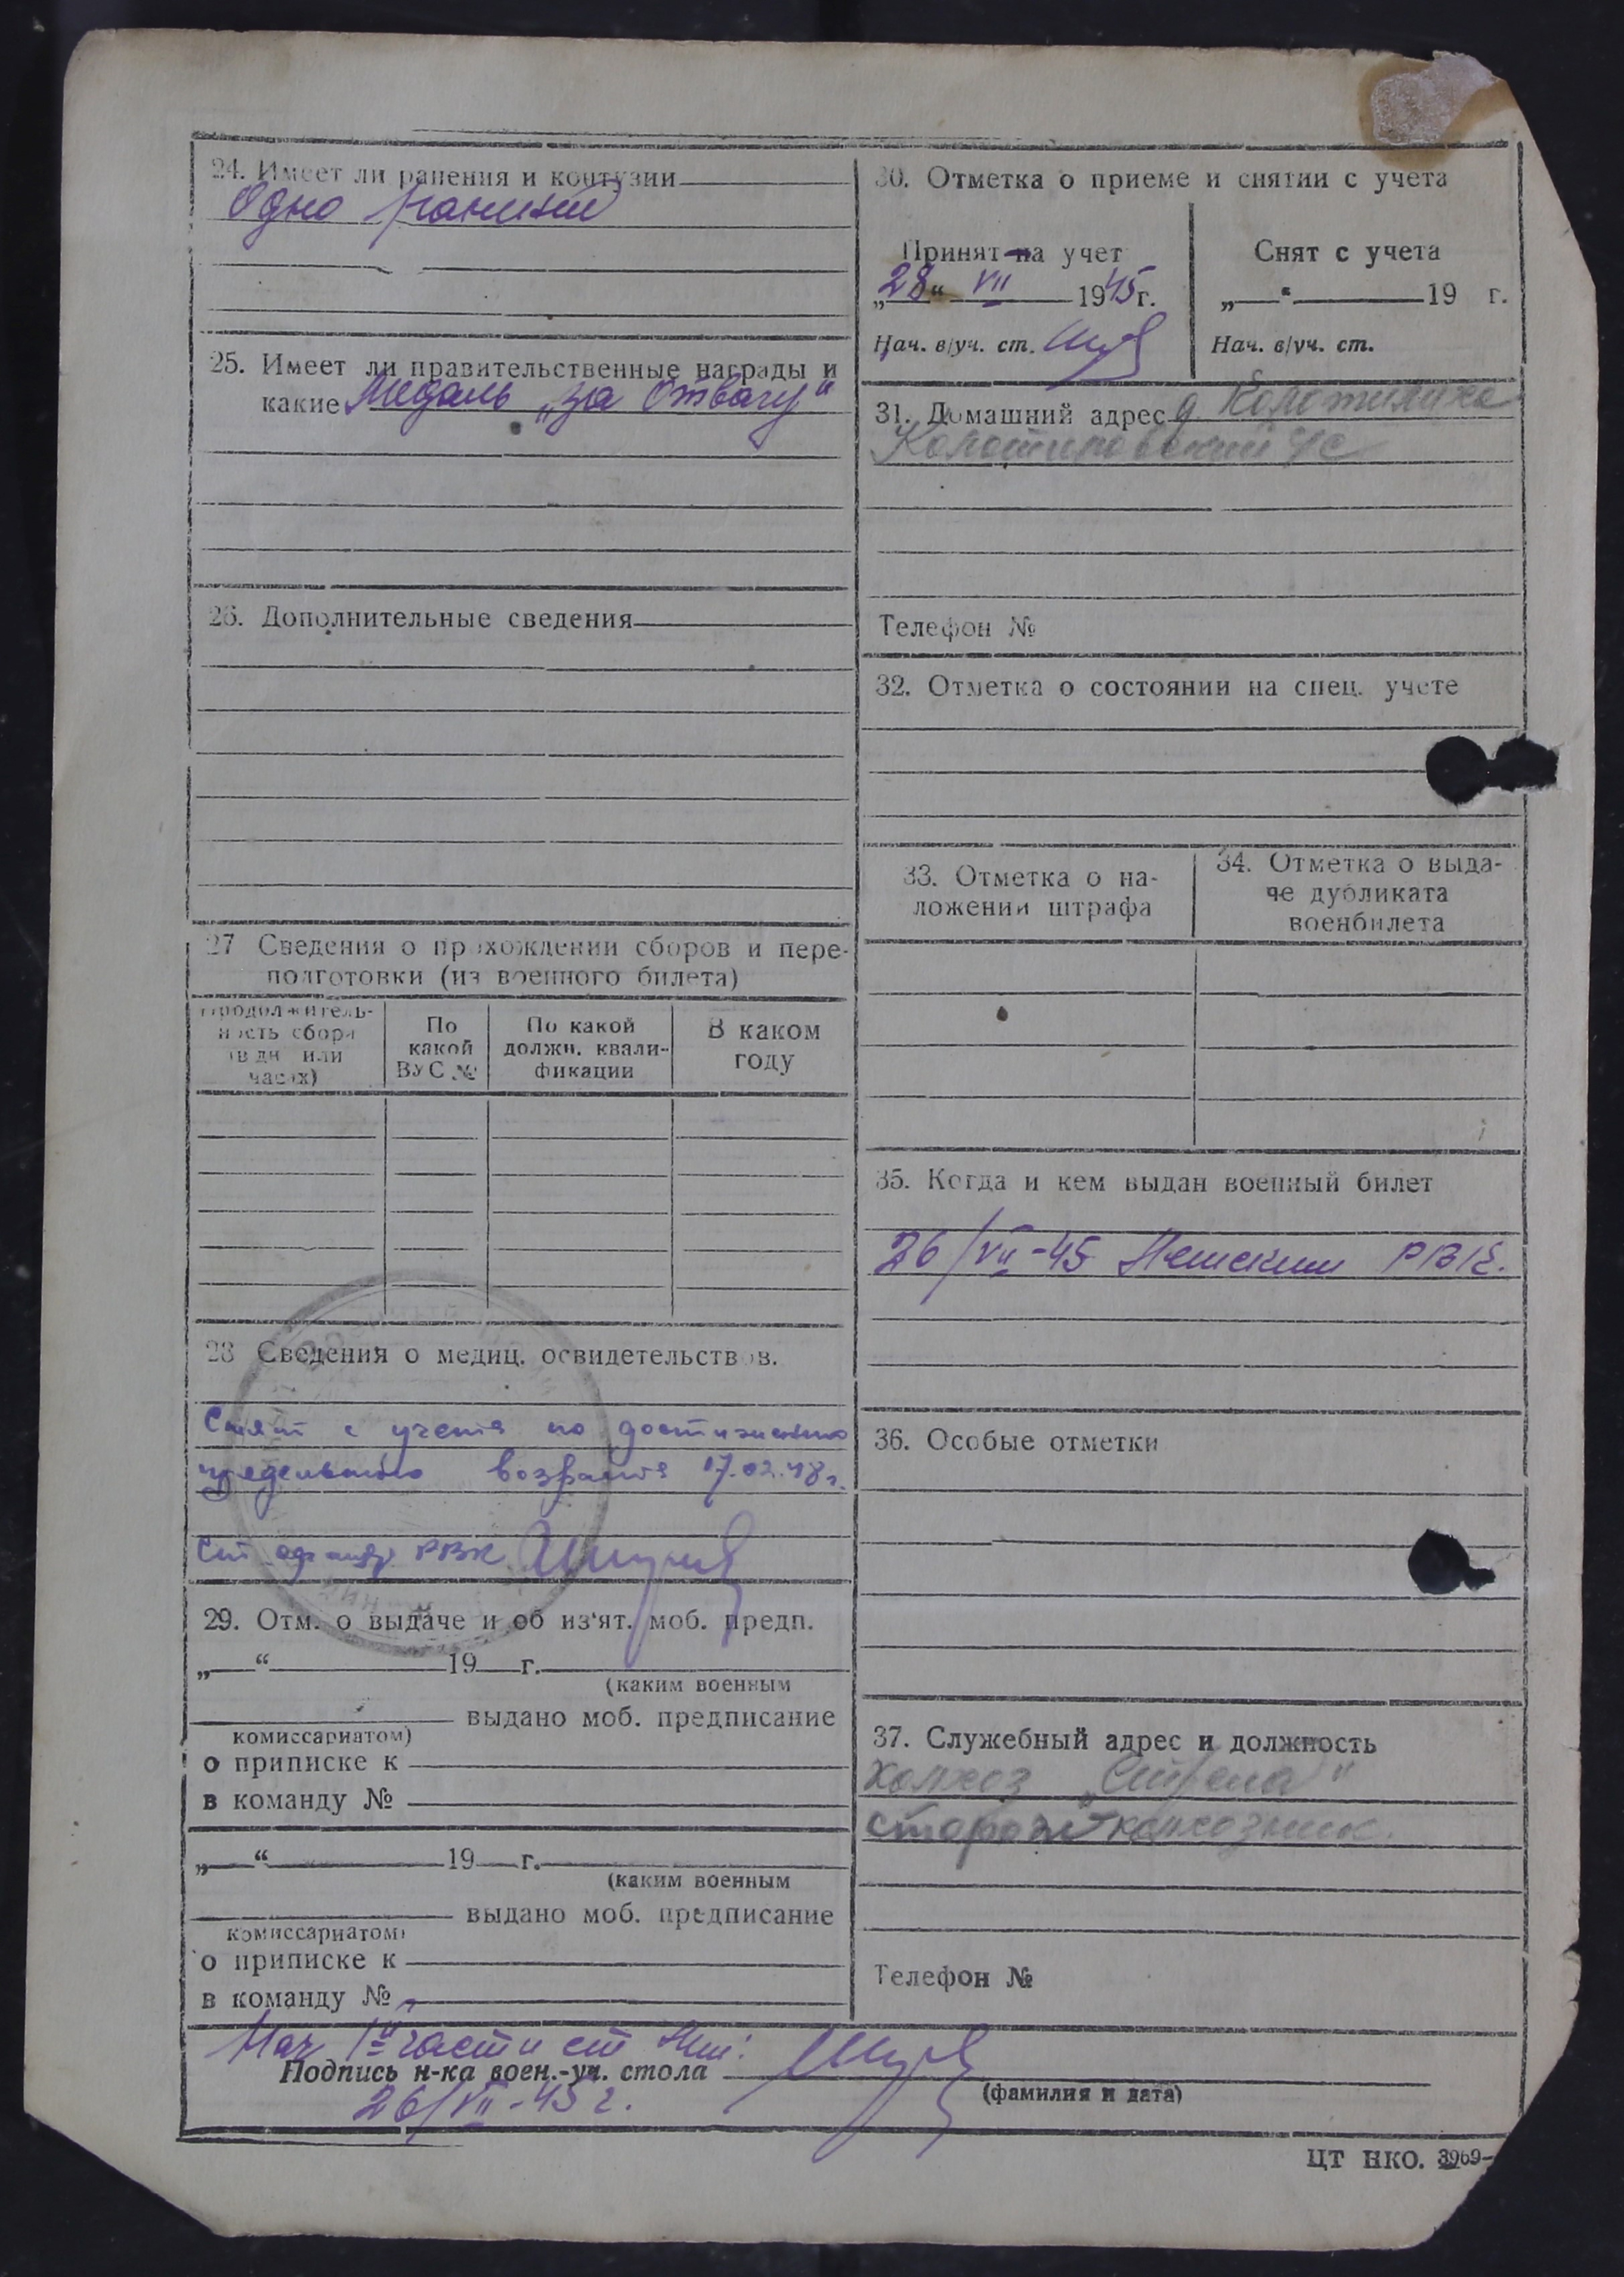 24. Имеет ли ранения и контузии
Одно ранение
25. Имеет ли правительственные награды и
какие Медаль „за Отвагу"
26. Дополнительные сведения
27 Сведения о прохождении сборов и пере-
подготовки (из военного билета)
Продолжитель-
ность сбора
(в дн или
часах)
По
какой
ВУС №
По какой
должн. квали-
фикации
В каком
году
28 Сведения о медиц. освидетельствов.
Снят с учета по достижению
предельного возраста 17.02.48 г.
РВК
29. Отм. о выдаче и об из'ят. моб. предп.
„ “ 19 г.
(каким военным
выдано моб. предписание
комиссариатом)
о приписке к
в команду №
„ “ 19 г.
(каким военным
выдано моб. предписание
комиссариатом)
о приписке к
в команду №
30. Отметка о приеме и снятии с учета
Принят на учет
„28“ VII 1945 г.
Нач. в/уч. ст.
Снят с учета
„ “ 19 г.
Нач. в/уч. ст.
31. Домашний адрес д.
Телефон №
32. Отметка о состоянии на спец. учете
33. Отметка о на-
ложении штрафа
34. Отметка о выда-
че дубликата
военбилета
35. Когда и кем выдан военный билет
26/VII-45 РВК.
36. Особые отметки
37. Служебный адрес и должность
колхоз „Стрела"
сторож колхозник
Телефон №
Нач 1й части ст
Подпись н-ка воен.-уч. стола
(фамилия и дата)
26/VII-45 г.
ЦТ НКО. 3969-